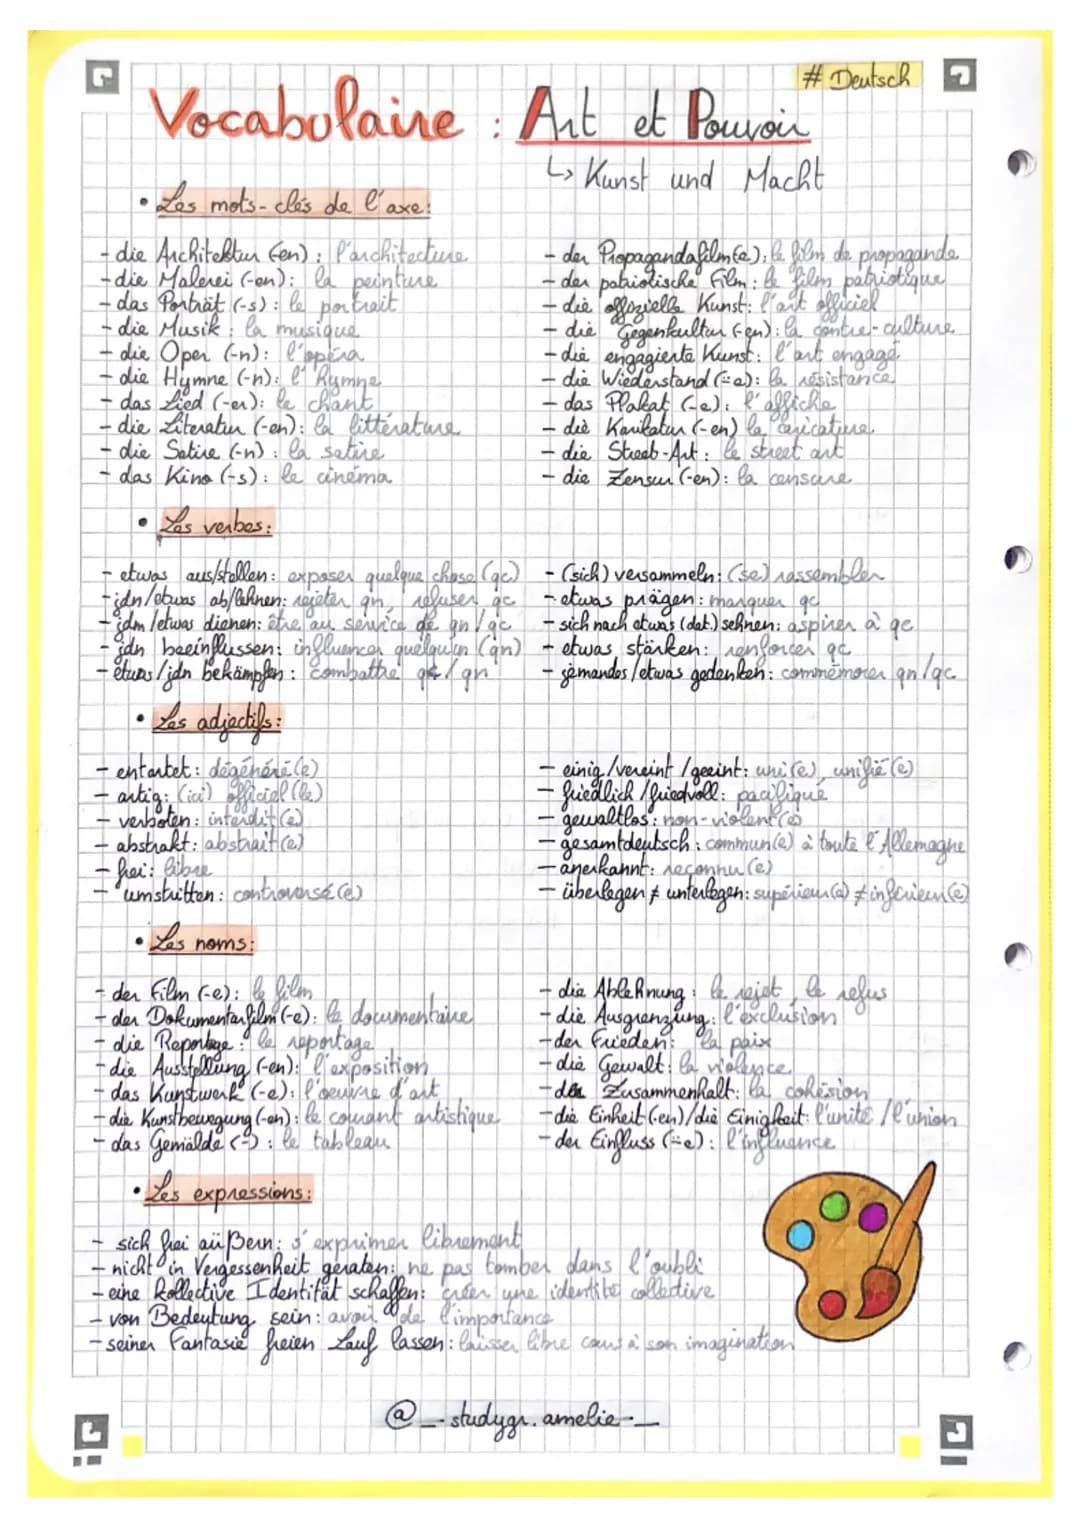 # Deutsch
Vocabulaire : Art et Pouvoir
↳ Kunst und Macht
• Les mots-clés de l'axe:
- die Architektur (-en) : l'architecture
- die Malerei (-en) : la peinture
- das Porträt (-s) : le portrait
- die Musik : la musique
- die Oper (-n) : l'opéra
- die Hymne (-n) : l'hymne
- das Lied (-er) : le chant
- die Literatur (-en) : la littérature
- die Satire (-n) : la satire
- das Kino (-s) : le cinéma
- der Propagandafilm(e) : le film de propagande
- der patriotische Film : le film patriotique
- die offizielle Kunst : l'art officiel
- die Gegenkultur (-en) : la contre-culture
- die engagierte Kunst : l'art engagé
- die Wiederstand (¨e) : la résistance
- das Plakat (-e) : l'affiche
- die Karikatur (-en) la caricature
- die Street-Art : le street art
- die Zensur (-en) : la censure
• Les verbes :
- etwas aus/stellen : exposer quelque chose (qc)
- jdn/etwas ab/lehnen : rejeter qn, refuser qc
- jdm/etwas dienen : être au service de qn/qc
- jdn beeinflussen : influencer quelqu'un (qn)
- etwas/jdn bekämpfen : combattre qc/qn
- (sich) versammeln : (se) rassembler
- etwas prägen : marquer qc
- sich nach etwas (dat.) sehnen : aspirer à qc
- etwas stärken : renforcer qc
- jemandes/etwas gedenken : commémorer qn/qc
• Les adjectifs :
- entartet : dégénéré(e)
- artig : (ici) officiel (le)
- verboten : interdit(e)
- abstrakt : abstrait(e)
- frei : libre
- umstritten : controversé(e)
- einig/vereint/geeint : uni(e), unifié(e)
- friedlich/friedvoll : pacifique
- gewaltlos : non-violent(e)
- gesamtdeutsch : commun(e) à toute l'Allemagne
- anerkannt : reconnu(e)
- überlegen ≠ unterlegen : supérieur(e) ≠ inférieur(e)
• Les noms :
- der Film (-e) : le film
- der Dokumentarfilm (-e) : le documentaire
- die Reportage : le reportage
- die Ausstellung (-en) : l'exposition
- das Kunstwerk (-e) : l'oeuvre d'art
- die Kunstbewegung (-en) : le courant artistique
- das Gemälde (-) : le tableau
- die Ablehnung : le rejet, le refus
- die Ausgrenzung : l'exclusion
- der Frieden : la paix
- die Gewalt : la violence
- der Zusammenhalt : la cohésion
- die Einheit (-en)/die Einigkeit : l'unité/l'union
- der Einfluss (¨e) : l'influence
• Les expressions :
- sich frei aüßern : s'exprimer librement
- nicht in Vergessenheit geraten : ne pas tomber dans l'oubli
- eine kollective Identität schaffen : créer une identité collective
- von Bedeutung sein : avoir de l'importance
- seiner Fantasie freien Lauf lassen : laisser libre cours à son imagination
@_-studygr.amelie-_